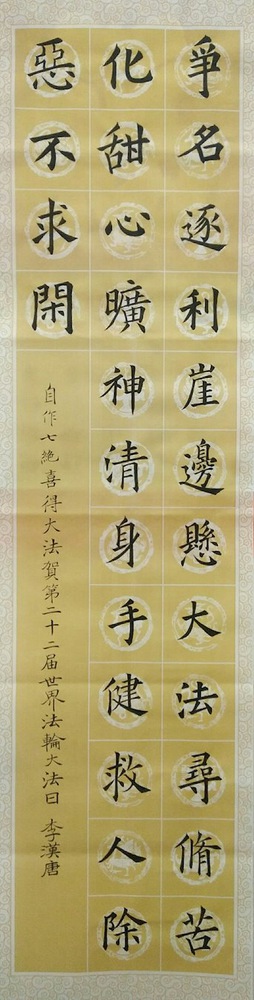 爭名逐利崖邊懸大法尋脩苦
化甜心曠神清身手健救人除
惡不求閑
自作七絕喜得大法賀第二十二届世界法輪大法日 李漢唐